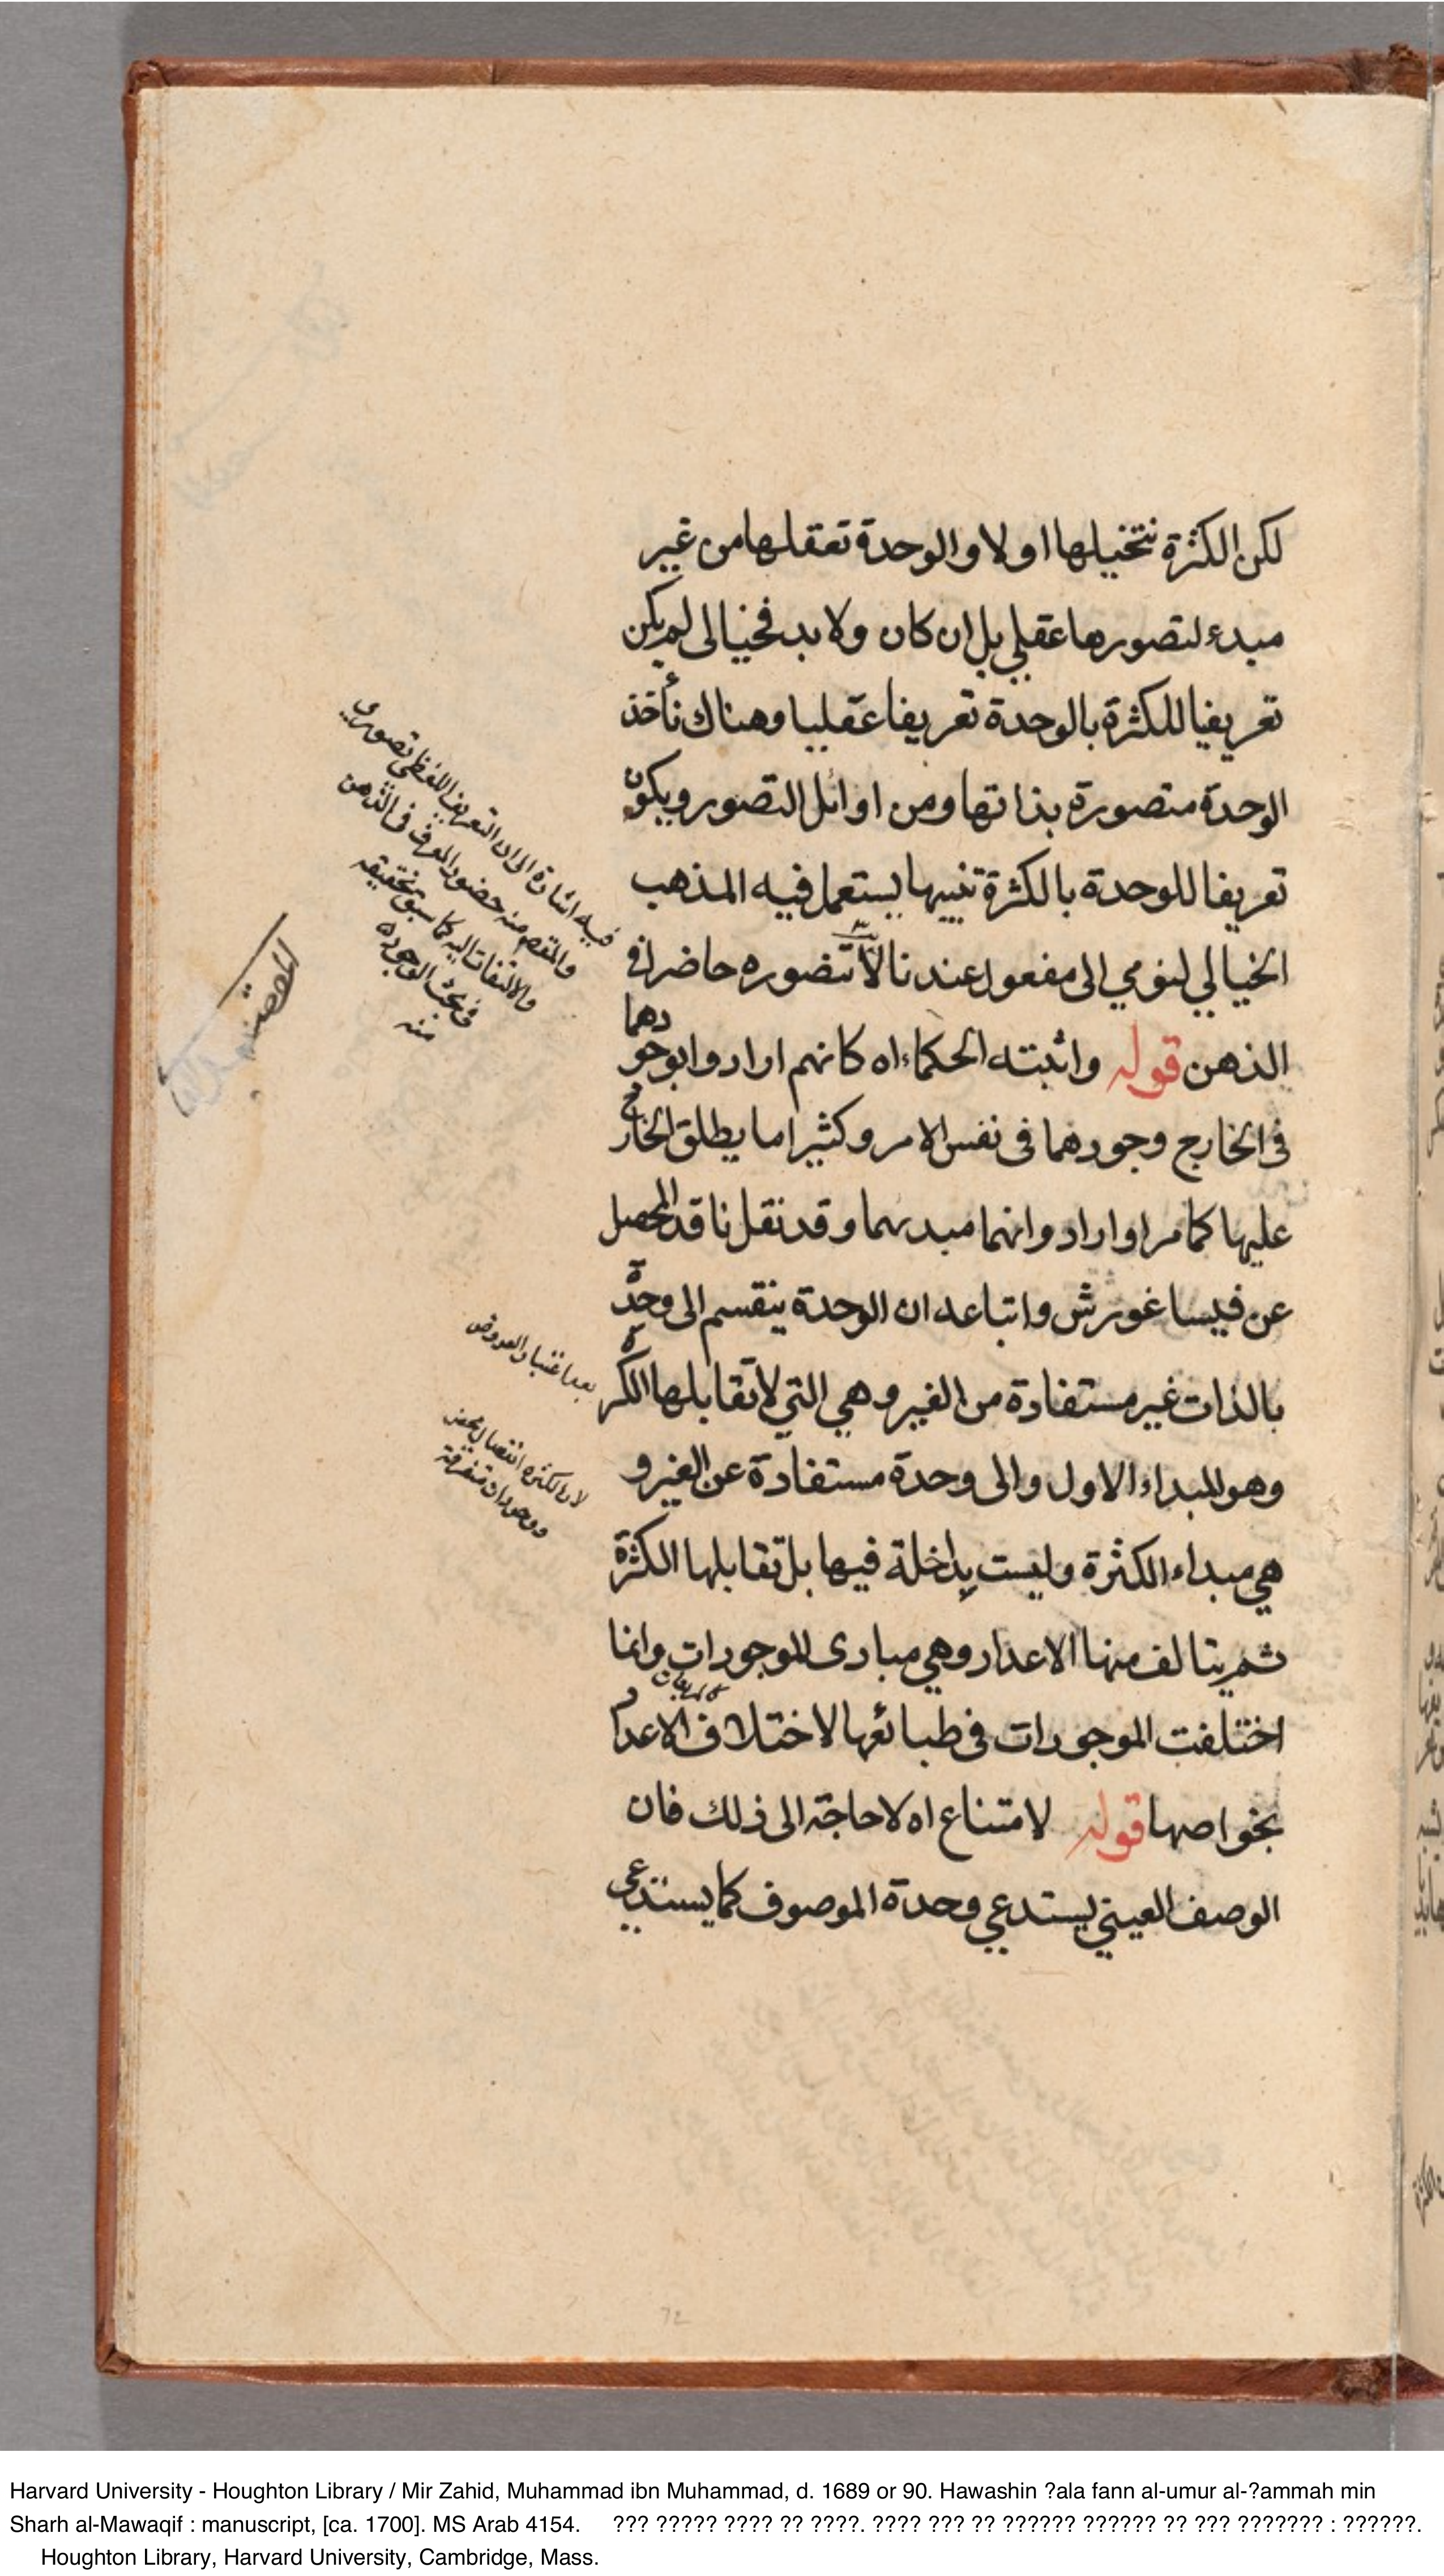 لكن الكثرة نتخيلها اولا والوحدة تعقلها من غير
مبدء لتصورها عقلي بل ان كان ولا بد فخيالى لم يكن
تعريفيا للكثرة بالوحدة تعريفا عقليا وهناك نأخذ
الوحدة متصورة بذاتها ومن اوائل التصور ويكون
تعريفا للوحدة بالكثرة تنبيها يستعمل فيه المذهب
الخيالي لنومي الى مفعول عندنا لا نتصوره حاضرا في
الذهن قوله واثبته الحكماء اه كانهم ارادوا بوجودهما
في الخارج وجودهما في نفس الامر وكثيرا ما يطلق الخارج
عليها كما مر او ارادوا انهما مبديهما وقد نقل ناقد المحصل
عن فيساغورش واتباعه ان الوحدة ينقسم الى وحدة
بالذات غير مستفادة من الغير وهي التي لا تقابلها الكثرة
وهو المبداء الاول والى وحدة مستفادة عن الغير و
هي مبداء الكثرة وليست بداخلة فيها بل تقابلها الكثرة
ثم يتالف منها الاعداد وهي مبادى الموجودات وانما
اختلفت الموجودات في طبائعها لاختلاف الاعداد
بخواصها قوله لامتناع اه لا حاجة الى ذلك فان
الوصف العيني يستدعي وحدة الموصوف كما يستدعي
فيه اشارة الى ان التعريف اللفظي تصوري
والمقصم منه حضور المعرف في الذهن
والالتفات اليه كما سبق تحقيقه
في بحث الوجود
منه
لان الكثرة
72
Harvard University - Houghton Library / Mir Zahid, Muhammad ibn Muhammad, d. 1689 or 90. Hawashin ?ala fann al-umur al-?ammah min
Sharh al-Mawaqif : manuscript, [ca. 1700]. MS Arab 4154. ??? ????? ???? ?? ????. ???? ??? ?? ?????? ?????? ?? ??? ??????? : ??????.
Houghton Library, Harvard University, Cambridge, Mass.